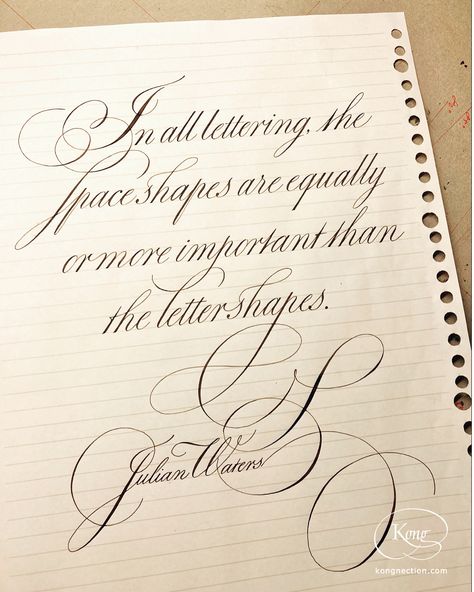 In all lettering, the
space shapes are equally
or more important than
the letter shapes.
Julian Waters
Kong
kongnection.com